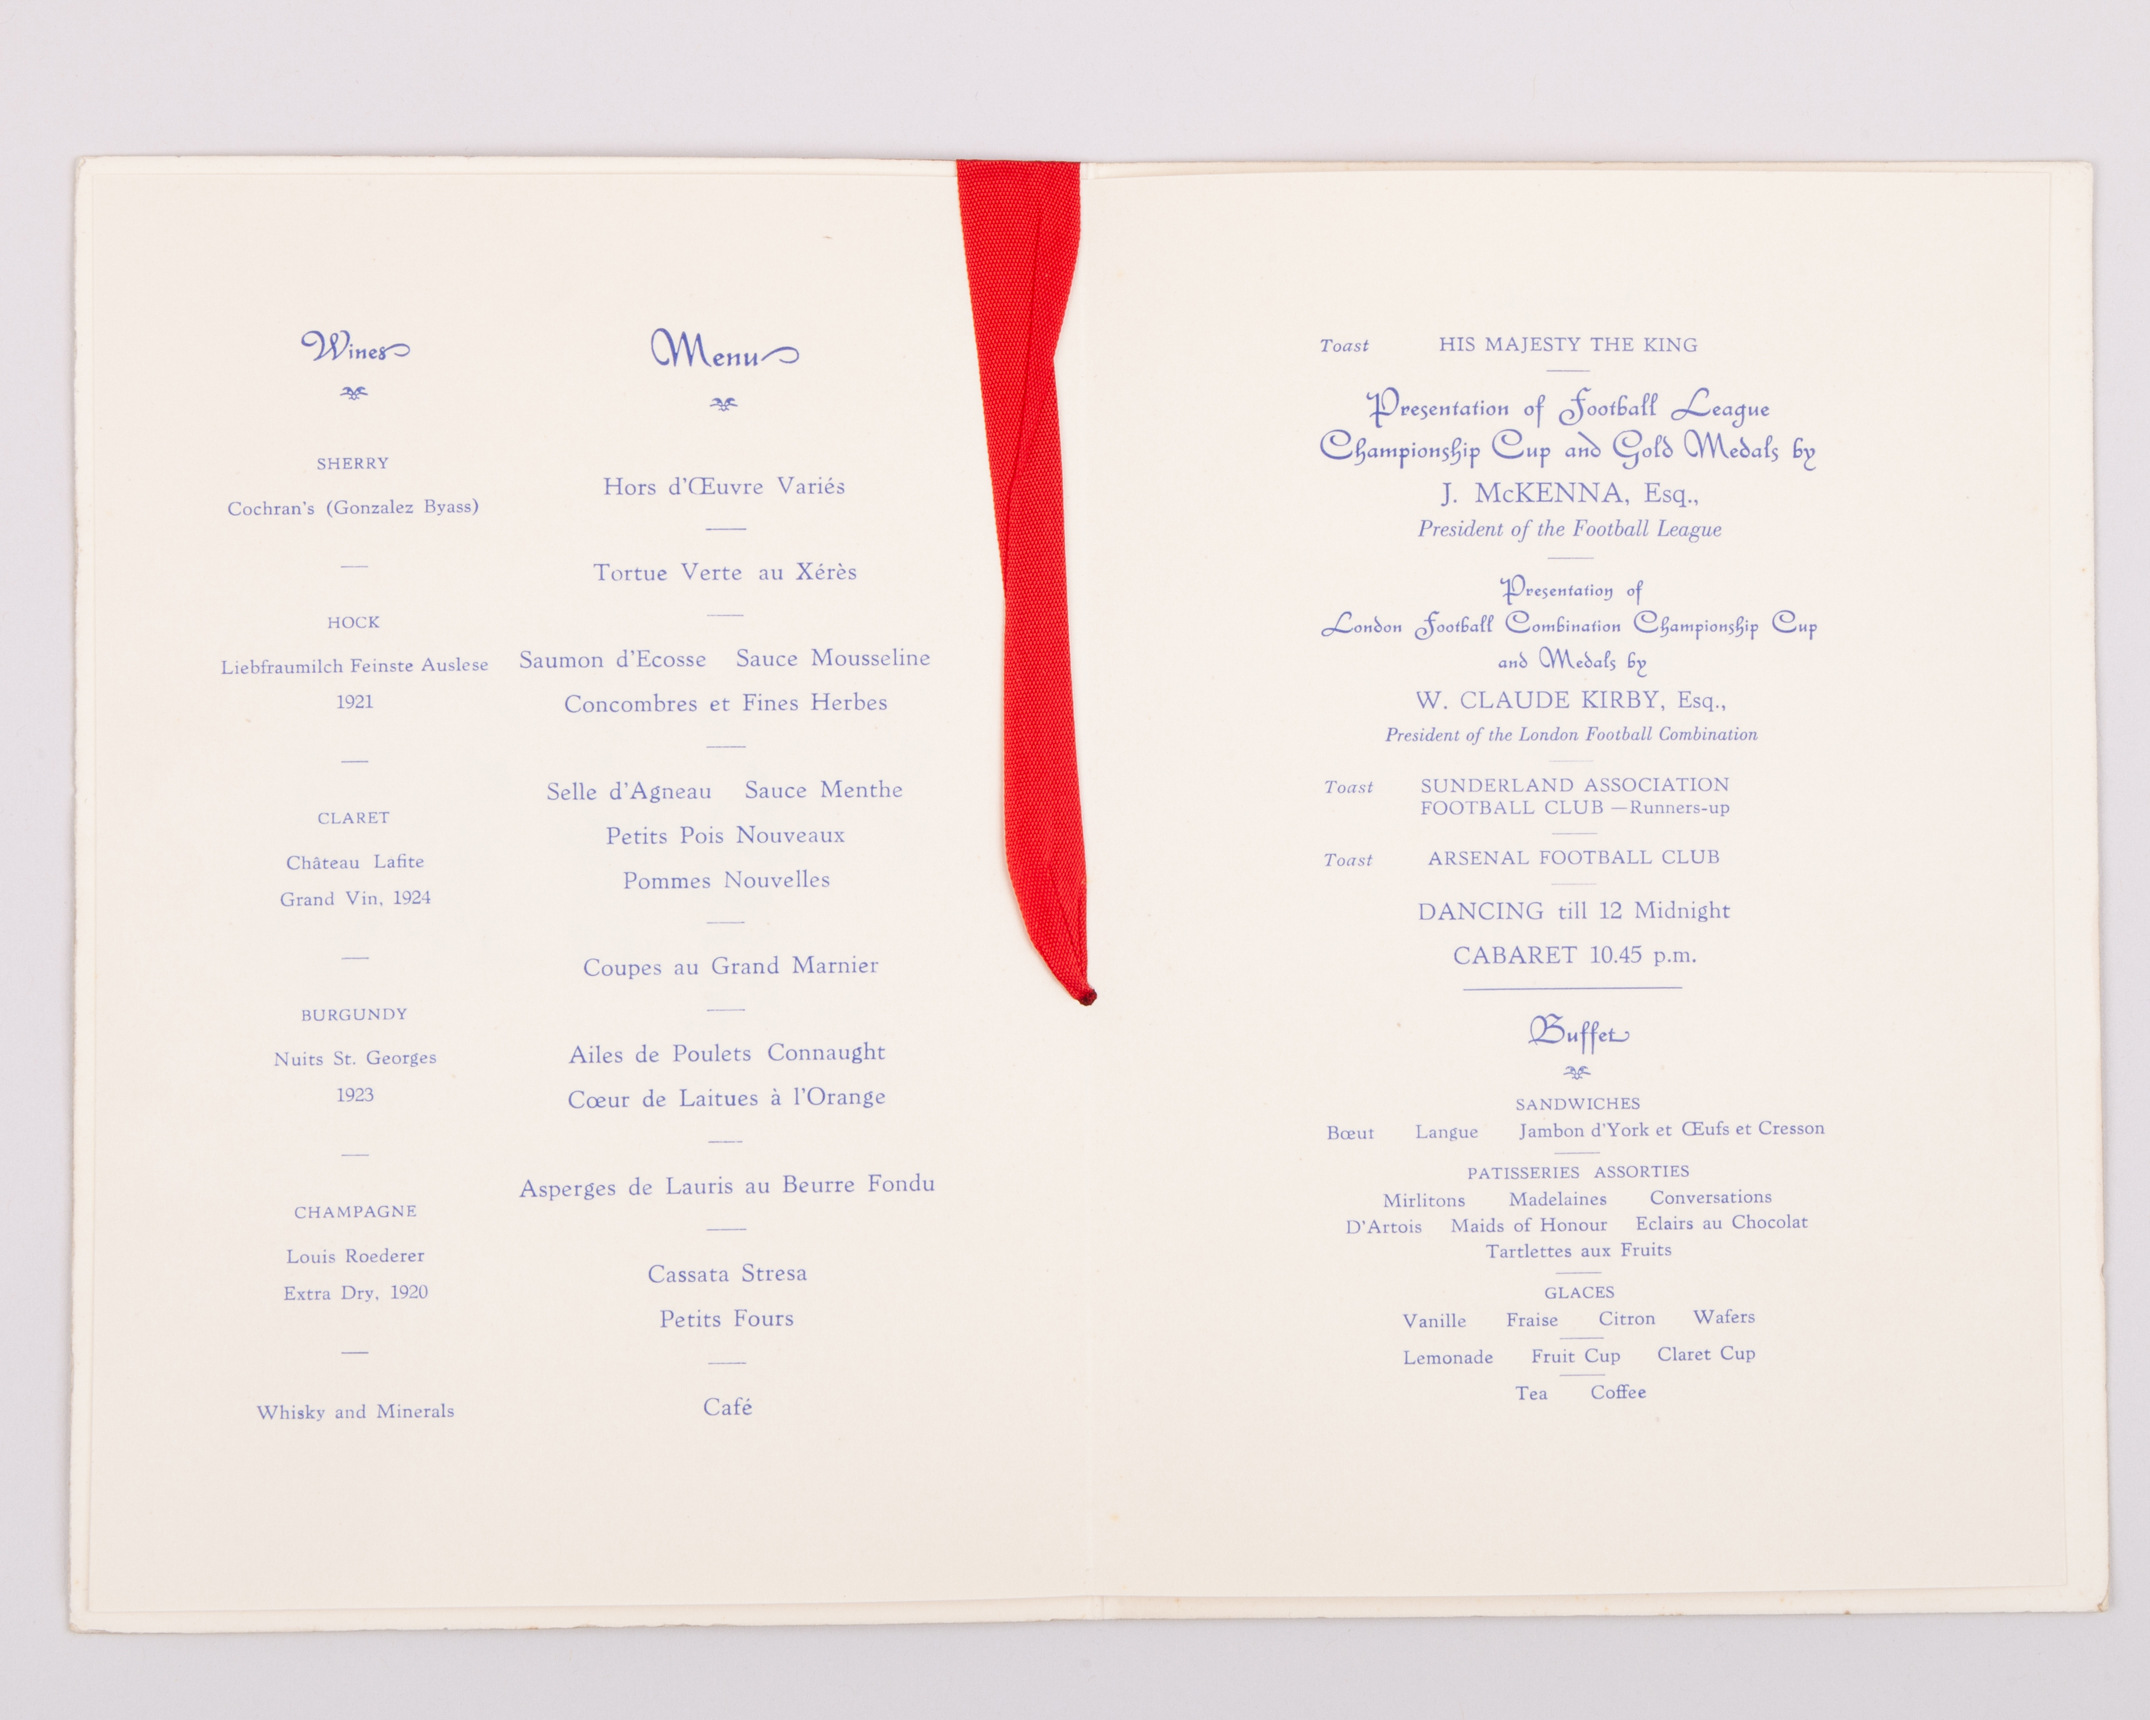 Wines
SHERRY
Cochran's (Gonzalez Byass)
HOCK
Liebfraumilch Feinste Auslese
1921
CLARET
Château Lafite
Grand Vin, 1924
BURGUNDY
Nuits St. Georges
1923
CHAMPAGNE
Louis Roederer
Extra Dry, 1920
Whisky and Minerals
Menu
Hors d'Œuvre Variés
Tortue Verte au Xérès
Saumon d'Ecosse Sauce Mousseline
Concombres et Fines Herbes
Selle d'Agneau Sauce Menthe
Petits Pois Nouveaux
Pommes Nouvelles
Coupes au Grand Marnier
Ailes de Poulets Connaught
Cœur de Laitues à l'Orange
Asperges de Lauris au Beurre Fondu
Cassata Stresa
Petits Fours
Café
Toast HIS MAJESTY THE KING
Presentation of Football League
Championship Cup and Gold Medals by
J. McKENNA, Esq.,
President of the Football League
Presentation of
London Football Combination Championship Cup
and Medals by
W. CLAUDE KIRBY, Esq.,
President of the London Football Combination
Toast SUNDERLAND ASSOCIATION
FOOTBALL CLUB—Runners-up
Toast ARSENAL FOOTBALL CLUB
DANCING till 12 Midnight
CABARET 10.45 p.m.
Buffet
SANDWICHES
Bœut Langue Jambon d'York et Œufs et Cresson
PATISSERIES ASSORTIES
Mirlitons Madelaines Conversations
D'Artois Maids of Honour Eclairs au Chocolat
Tartlettes aux Fruits
GLACES
Vanille Fraise Citron Wafers
Lemonade Fruit Cup Claret Cup
Tea Coffee